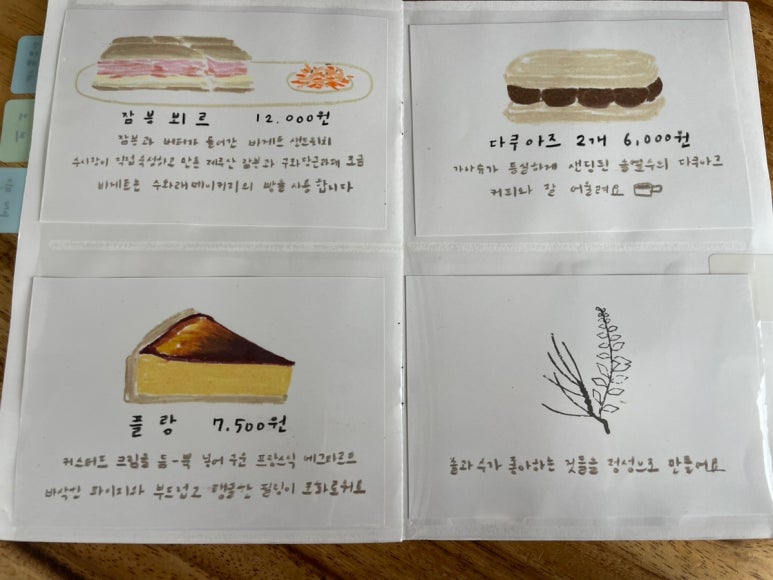 잠봉 뵈르 12,000원
잠봉과 버터가 들어간 바게트 샌드위치
수시장이 직접 숙성하고 만든 제주산 잠봉과 구좌당근라페 조금
바게트는 수와래베이커리의 빵을 사용합니다
다쿠아즈 2개 6,000원
가나슈가 듬실하게 샌딩된 솔엔수의 다쿠아즈
커피와 잘 어울려요
플랑 7,500원
커스터드 크림을 듬-뿍 넣어 구운 프랑스식 에그타르트
바삭한 파이지와 부드럽고 탱글한 필링이 조화로워요
솔과 수가 좋아하는 것들을 정성으로 만들어요